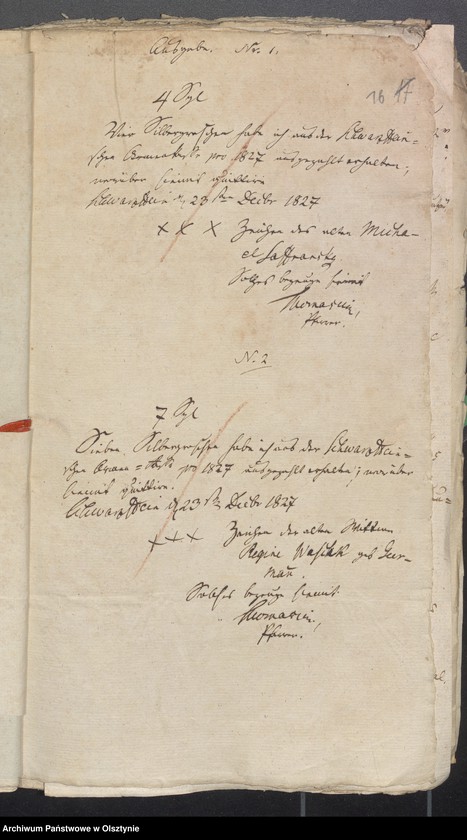 Ausgabe. Nr. 1.
16 17
4 Sgl
Vier Silbergroschen habe ich aus der Schwarzstein=
schen Armenkasse pro 1827 ausgezahlt erhalten;
worüber hiemit quittire
Schwarzstein d. 23sten Decbr 1827
x x x Zeichen des alten Micha-
el Saffransky
Solches bezeuge hiemit
Thomascik,
Pfarrer.
N. 2
7 Sgl
Sieben Silbergroschen habe ich aus der Schwarzstein=
schen Armen= pro 1827 ausgezahlt erhalten; worüber
hiemit quittire.
Schwarzstein d 23sten Decbr 1827
x x x Zeichen der alten Wittwe
Regine geb
Solches bezeuge hiemit
Thomascik,
Pfarrer.
Archiwum Państwowe w Olsztynie